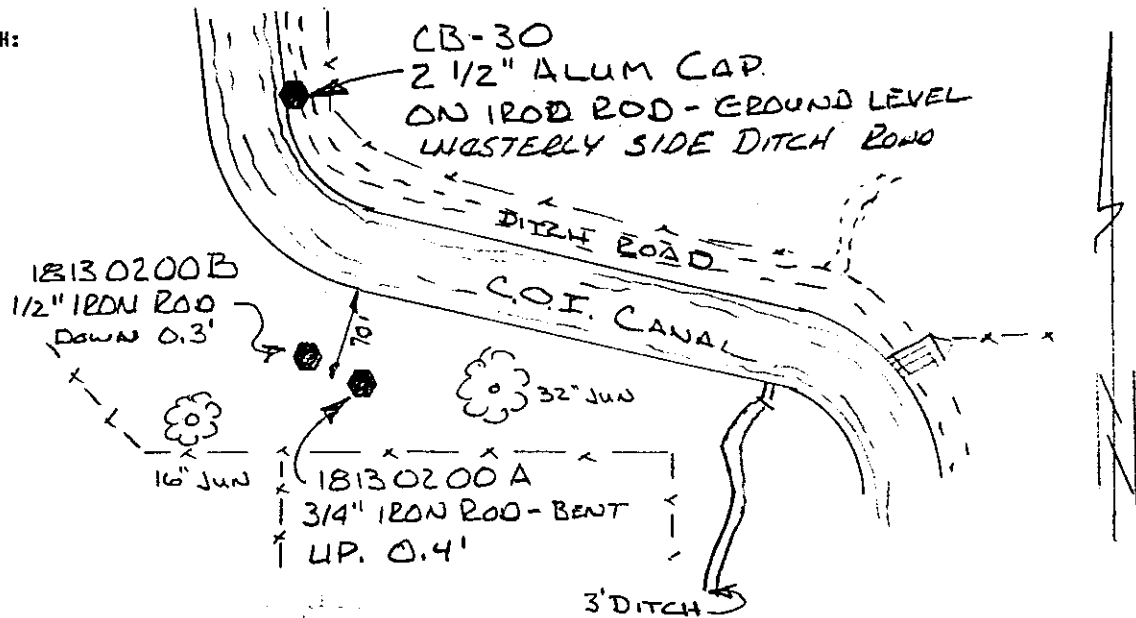 H:
CB-30
2 1/2" ALUM CAP.
ON IROD ROD - GROUND LEVEL
WESTERLY SIDE DITCH ROAD
DITCH ROAD
C.O.I. CANAL
18130200B
1/2" IRON ROD
DOWN 0.3'
70'
32" JUN
16" JUN
18130200A
3/4" IRON ROD - BENT
UP. 0.4'
3' DITCH
N